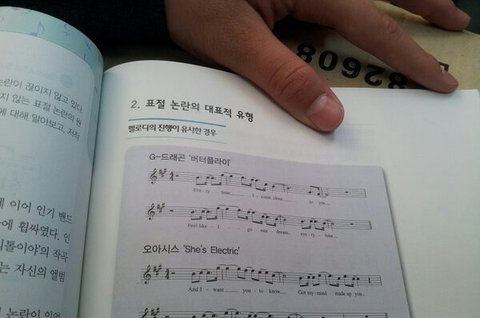 논란이 끊이지 않고 있다
지 않는 표절 논란의 원
에 대해 알아보고, 저작
에 이어 인기 밴드
에 휩싸였다. 인
의 작곡
는 자신의 앨범
2. 표절 논란의 대표적 유형
멜로디의 진행이 유사한 경우
G-드래곤 '버터플라이'
Every time I come close to you
Feel like I gonna dream, every time
오아시스 'She's Electric'
And I want you to know Got my mind made up you
82608